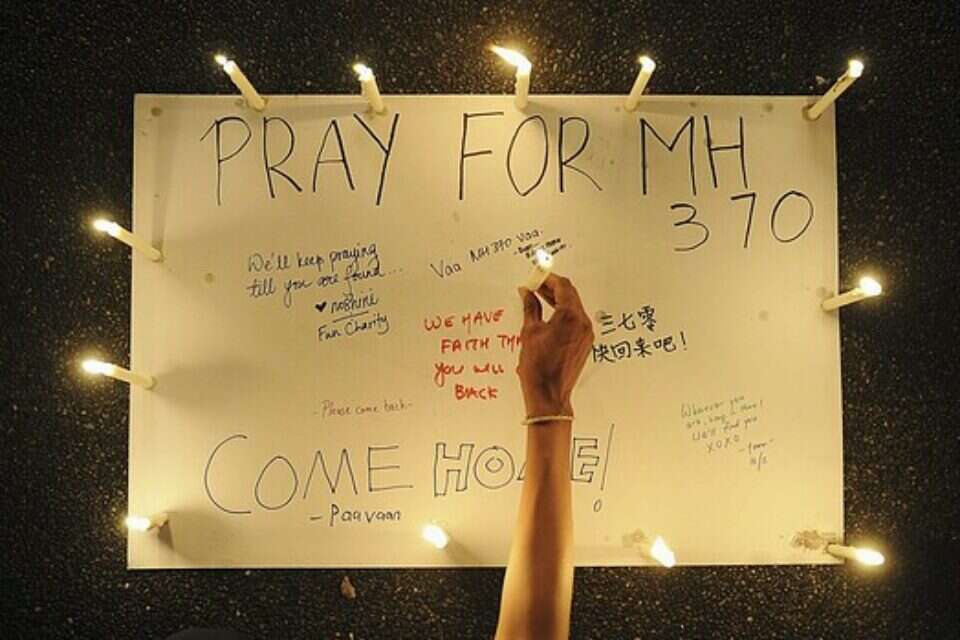 PRAY FOR MH
370
We'll keep praying
till you are found...
♥ noshini
Fun Charity
Vaa MH370 Vaa.
WE HAVE
FAITH
YOU WILL
BACK
三七零
快回来吧!
- Please come back -
Wherever you
are, hang in there!
We'll find you
XOXO
COME HOME!
- Paavaan